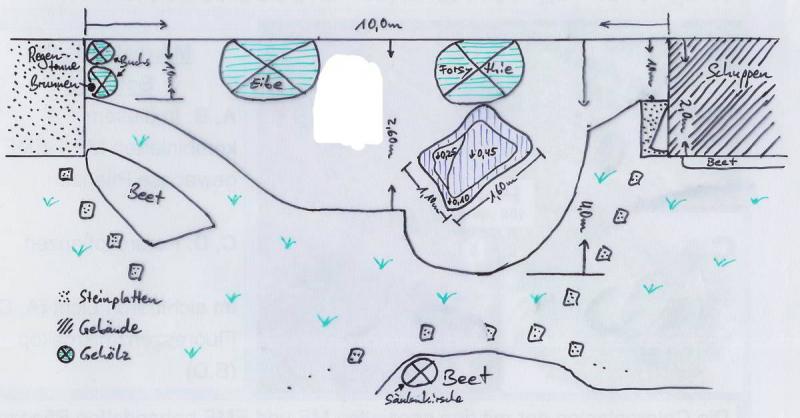 10,0m
Regen-
tonne
Brunnen
Buchs
1,0m
Eibe
2,60m
Forsythie
1,0m
2,0m
Schuppen
Beet
↓0,25
↓0,45
↓0,10
1,10m
1,60m
4,0m
Beet
Steinplatten
Gebäude
Gehölz
Beet
Säulenkirsche